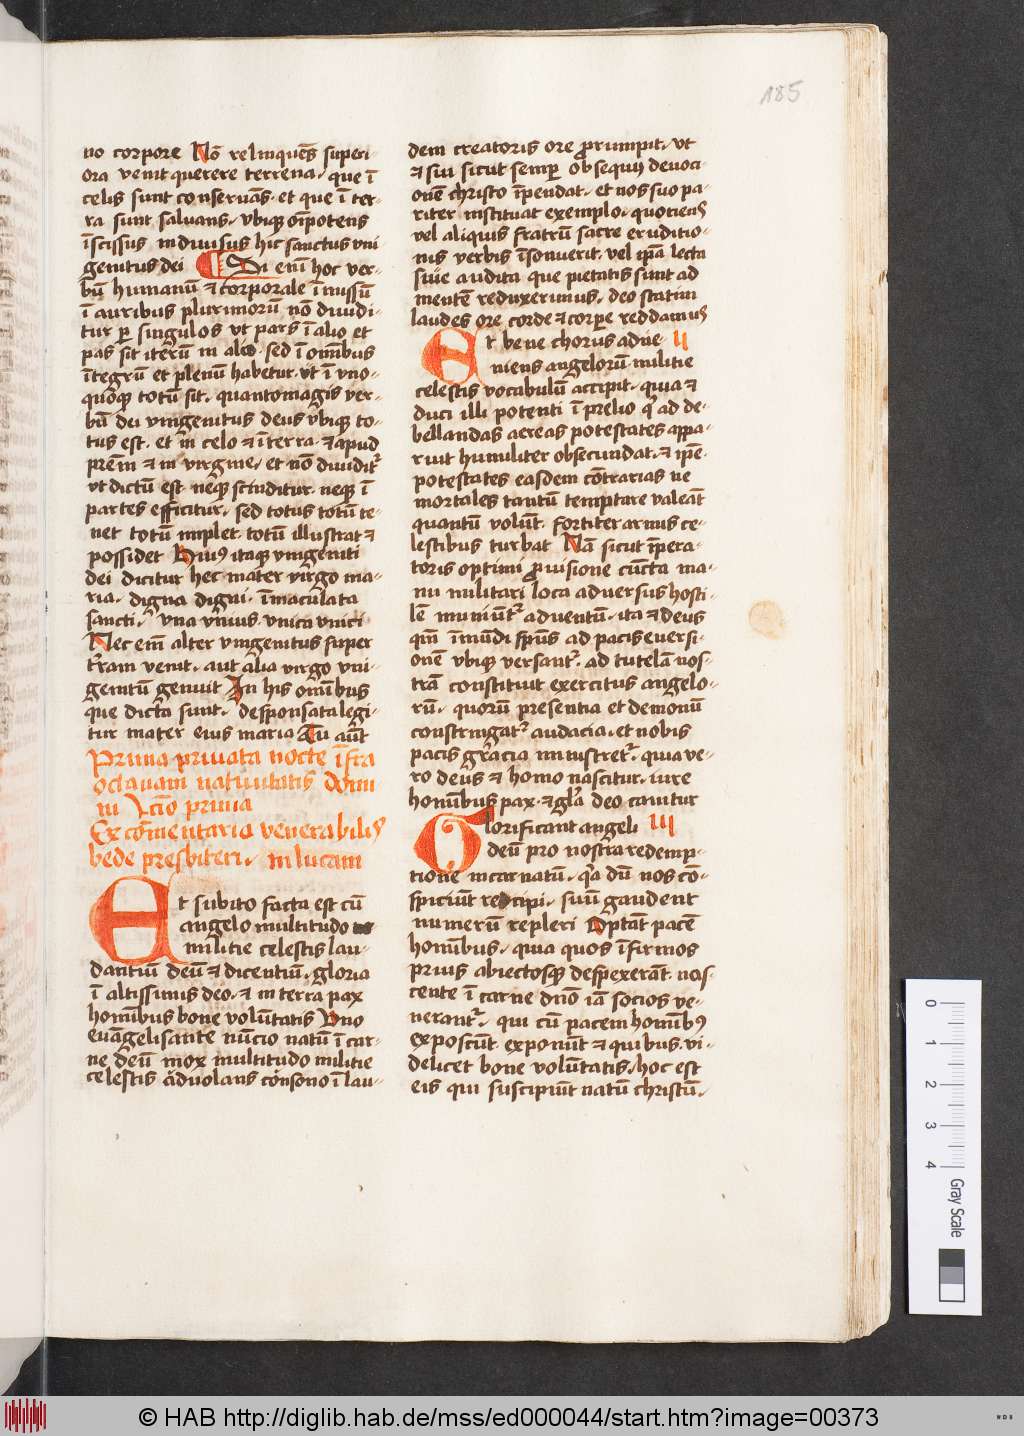 185
no corpore Nō relinquēs superi-
ora venit querere terrena. que ī
celis sunt conseruās. et que ī ter-
ra sunt saluans. vbiqȝ oīpotens
īscissus indiuisus hic sanctus vni
genitus dei Si enī hoc ver-
bū humanū ⁊ corporale ī missū
ī auribus plurimorū nō diuidi-
tur ꝑ singulos vt pars ī alio et
pars sit iterū in alio. sed ī omībus
ītegrū et plenū habetur. vt ī vno-
quoqȝ totū sit. quantomagis ver-
bū dei vnigenitus deus vbiqȝ to-
tus est. et in celo ⁊ ī terra. ⁊ apud
prēm ⁊ in virgine. et nō diuidit᷑
vt dictū est. neqȝ scinditur. neqȝ ī
partes efficitur. sed totus totū te-
net totū implet. totū illustrat ⁊
possidet Huiꝰ itaqȝ vnigeniti
dei dicitur hec mater virgo ma-
ria. digna digni. īmaculata
sancti. vna vnius. vnica vnici
Nec em̄ alter vnigenitus super
t̄ram venit. aut alia virgo vni-
genitū genuit In his omībus
que dicta sunt. desponsata legi-
tur mater eius maria Tu aūt
Prima priuata nocte īfra
octauam natiuitatis domi
ni Lc̄io prima
Ex cōmentario venerabiliꝰ
bede presbiteri. in lucam
Et subito facta est cū
angelo multitudo
militie celestis lau-
dantiū deū ⁊ dicentiū. gloria
ī altissimis deo. ⁊ in terra pax
homībus bone volūtatis Vno
euāgelisante nūcio natū ī car-
ne deū mox multitudo militie
celestis aduolans cōsono ī lau-
dem creatoris ore ꝓrumpit. vt
⁊ sui sicut semꝑ obsequij deuoci-
onē christo īpendat. et nos suo pa-
riter instituat exemplo. quociens
vel aliquis fratrū sacre eruditio-
nis verbis īsonuerit. vel ip̄a lecta
siue audita que pietatis sunt ad
mentē reduxerimus. deo statim
laudes ore corde ⁊ corpe reddamus
Et bene chorus adue- II
niens angelorū militie
celestis vocabulū accipit. quia ⁊
duci illi potenti ī prelio qͥ ad de-
bellandas aereas potestates appa-
ruit humiliter obsecundat. ⁊ ip̄e
potestates easdem cōtrarias ne
mortales tantū temptare valeāt
quantū volūt. fortiter armis ce-
lestibus turbat Nā sicut īpera-
toris optimi ꝓuisione cūcta ma-
nu militari loca aduersus hosti-
lē muniūt᷑ aduentū. ita ⁊ deus
qm̄ ī mūdi sp̄us ad pacis euersi-
onē vbiqȝ versant᷑. ad tutelā nos-
trā constituit exercitus angelo-
rū. quorū presentia et demonū
constringat᷑ audacia. et nobis
pacis gracia ministret᷑. quia ve-
ro deus ⁊ homo nascitur. iure
homībus pax. ⁊ gl̄a deo canitur
Glorificant angeli III
deū pro nostra redemp-
tione incarnatū. qͣ dū nos cō-
spiciūt recipi. suū gaudent
numerū repleri Optāt pacē
homībus. quia quos īfirmos
prius abiectosqȝ despexerāt. nos-
cente ī carne dn̄o iā socios ve-
nerant᷑. qui cū pacem homībꝰ
exposcūt. exponūt ⁊ quibus. vi-
delicet bone volūtatis. hoc est
eis qui suscipiūt natū christū.
0 1 2 3 4
Gray Scale
© HAB http://diglib.hab.de/mss/ed000044/start.htm?image=00373